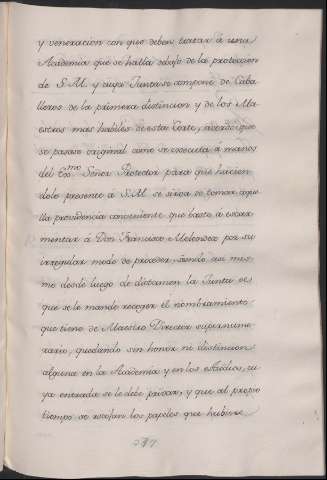 y veneracion con que deben tratar á una
Academia que se halla debajo de la proteccion
de S. M. y cuya Junta se compone de Caba-
lleros de la primera distincion y de los Ma-
estros mas habiles de esta Corte, acordó que
se pasase original como se executa á manos
del Exmo Señor Protector para que hacien-
dolo presente á S. M. se sirva de tomar aque-
lla providencia conveniente que baste á escar-
mentar á Don Francisco Melendez por su
irregular modo de proceder, siendo asi mis-
mo desde luego de dictamen la Junta de
que se le mande recoger el nombramiento
que tiene de Maestro Director supernume-
rario, quedando sin honor ni distincion
alguna en la Academia y en los estudios, cu-
ya entrada se le debe privar, y que al propio
tiempo se recojan los papeles que hubiere